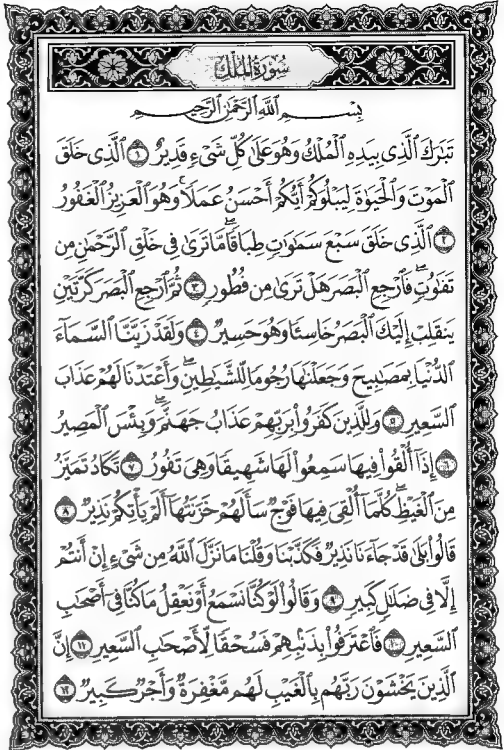 سُورَةُ المُلْكِ
بِسْمِ اللَّهِ الرَّحْمَٰنِ الرَّحِيمِ
تَبَارَكَ الَّذِي بِيَدِهِ الْمُلْكُ وَهُوَ عَلَىٰ كُلِّ شَيْءٍ قَدِيرٌ ١ الَّذِي خَلَقَ
الْمَوْتَ وَالْحَيَوٰةَ لِيَبْلُوَكُمْ أَيُّكُمْ أَحْسَنُ عَمَلًا وَهُوَ الْعَزِيزُ الْغَفُورُ
٢ الَّذِي خَلَقَ سَبْعَ سَمَٰوَٰتٍ طِبَاقًا مَّا تَرَىٰ فِي خَلْقِ الرَّحْمَٰنِ مِن
تَفَٰوُتٍ فَارْجِعِ الْبَصَرَ هَلْ تَرَىٰ مِن فُطُورٍ ٣ ثُمَّ ارْجِعِ الْبَصَرَ كَرَّتَيْنِ
يَنقَلِبْ إِلَيْكَ الْبَصَرُ خَاسِئًا وَهُوَ حَسِيرٌ ٤ وَلَقَدْ زَيَّنَّا السَّمَآءَ
الدُّنْيَا بِمَصَٰبِيحَ وَجَعَلْنَٰهَا رُجُومًا لِّلشَّيَٰطِينِ وَأَعْتَدْنَا لَهُمْ عَذَابَ
السَّعِيرِ ٥ وَلِلَّذِينَ كَفَرُوا بِرَبِّهِمْ عَذَابُ جَهَنَّمَ وَبِئْسَ الْمَصِيرُ
٦ إِذَآ أُلْقُوا فِيهَا سَمِعُوا لَهَا شَهِيقًا وَهِيَ تَفُورُ ٧ تَكَادُ تَمَيَّزُ
مِنَ الْغَيْظِ كُلَّمَآ أُلْقِيَ فِيهَا فَوْجٌ سَأَلَهُمْ خَزَنَتُهَآ أَلَمْ يَأْتِكُمْ نَذِيرٌ ٨
قَالُوا بَلَىٰ قَدْ جَآءَنَا نَذِيرٌ فَكَذَّبْنَا وَقُلْنَا مَا نَزَّلَ اللَّهُ مِن شَيْءٍ إِنْ أَنتُمْ
إِلَّا فِي ضَلَٰلٍ كَبِيرٍ ٩ وَقَالُوا لَوْ كُنَّا نَسْمَعُ أَوْ نَعْقِلُ مَا كُنَّا فِي أَصْحَٰبِ
السَّعِيرِ ١٠ فَاعْتَرَفُوا بِذَنبِهِمْ فَسُحْقًا لِّأَصْحَٰبِ السَّعِيرِ ١١ إِنَّ
الَّذِينَ يَخْشَوْنَ رَبَّهُم بِالْغَيْبِ لَهُم مَّغْفِرَةٌ وَأَجْرٌ كَبِيرٌ ١٢